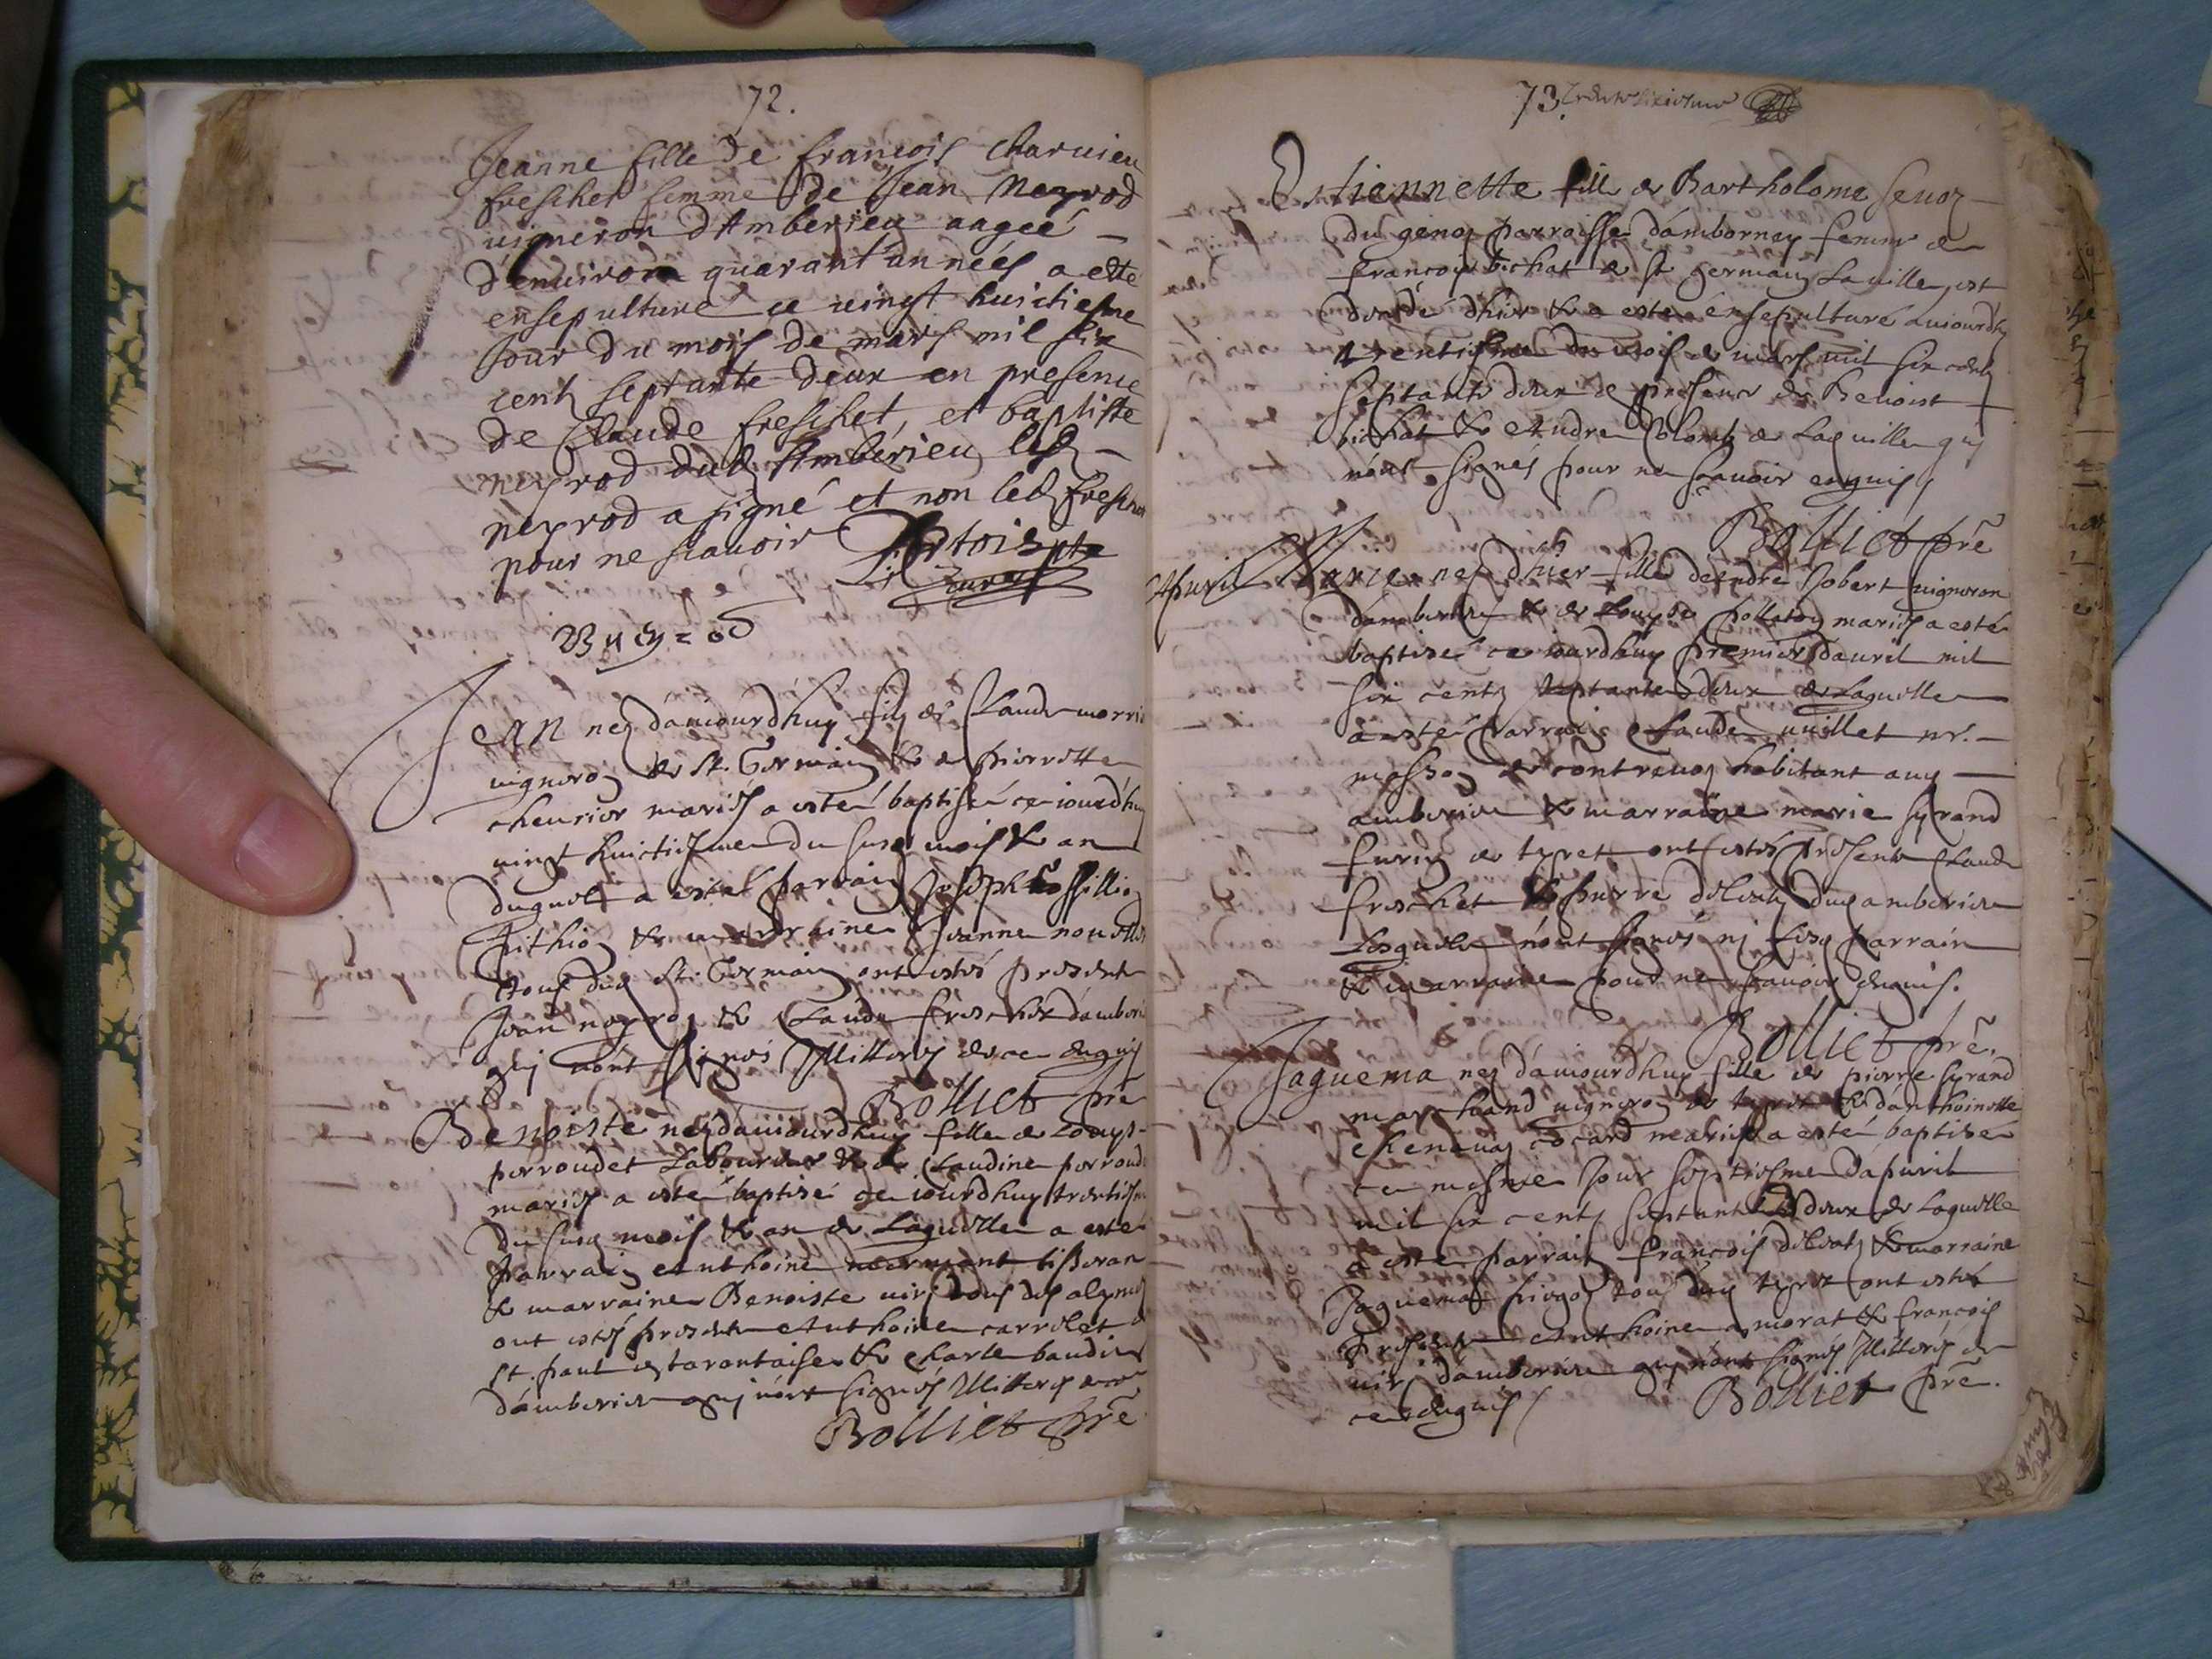 72.
Jeanne fille de francois charuieu
freschet femme de Jean Neyrod
uigneron dAmberieu aageé
d'enuiron quarant'années a este
ensepulture ce uingt huictiesme
Jour du mois de mars mil six
centz septante deux en presence
de Claude freschet, et baptiste
neyrod dud Amberieu led
neyrod a signé et non led fresche
pour ne scauoir
Jean nez daujourdhuy filz de Claude
uigneron de St. Germain & de pierrette
cheurier mariés a esté baptisé ce iourdhuy
uingt huictiesme du susd mois & an
duquel a esté parrain Joseph
& marraine Jeanne
tous dud St. Germain ont estés presentz
Jean neyrod & Claude freschet damberieu
quj nont signés Illitterés de ce enquis
Bolliet pre
Benoiste nez daujourdhuy fille de Louys
perroudet Laboureur & de Claudine perroud
mariés a esté baptisé ce iourdhuy trentiesme
du susd mois & an de Laquelle a esté
parrain Anthoine tisseran
& marraine Benoiste tous
ont estés presentz Anthoine carrolet
St. paul tarantaise & Charle baudin
damberieu quj nont signés Illitterés
Bolliet pre
73.
Estiennette fille de Bartholome
du genoz parroisse dambornay femme de
francois bichat de St germain La uille est
decedé dhier & a esté ensepulturé auiourdhuy
trentiesme du mois de mars mil six centz
septante deux de presence de Benoist
bichat & Andre Colomb de Lad uille quj
nont signés pour ne scauoir enquis
Bolliet pre
Apuril
Marie nez dhier fille dandre Jobert uigneron
damberieu & de Louyse mariés a esté
baptisé ce iourdhuy premier dauril mil
six centz septante deux de Laquelle
a esté parrain Claude uuillet mr.
masson de habitant aud
amberieu & marraine marie syrand
de tyret ont estés presentz Claude
freschet & pierre dud amberieu
Lesquels nont signés nj Lesd parrain
& marraine pour ne scauoir enquis.
Bolliet pre.
Jaquema nez daujourdhuy fille de pierre syrand
marchand uigneron de tyret & danthoinette
cocard mariés a esté baptisé
ce mesme Jour septiesme dapuril
mil six centz septante deux de Laquelle
a esté parrain francois & marraine
Jaquema tous dud tyret ont estés
presentz Anthoine morat & francois
damberieu quj nont signés Illitterés de
ce enquis
Bolliet pre.